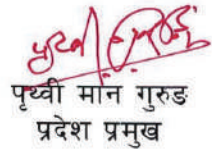 पृथ्वी मान गुरुङ
प्रदेश प्रमुख